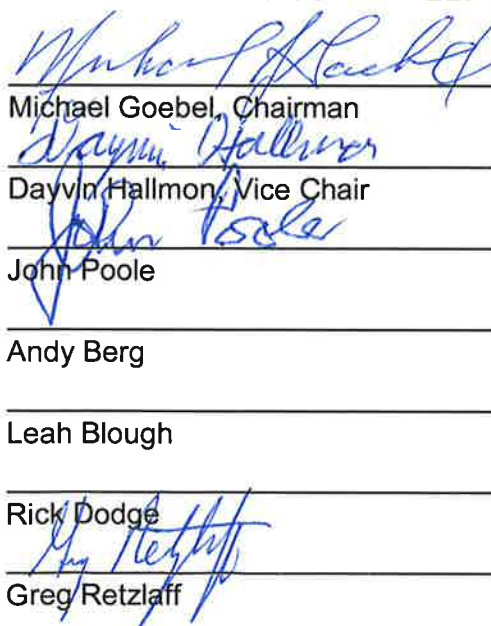 Michael Goebel
Michael Goebel, Chairman
Dayvin Hallmon
Dayvin Hallmon, Vice Chair
John Poole
John Poole
Andy Berg
Leah Blough
Rick Dodge
Greg Retzlaff
Greg Retzlaff